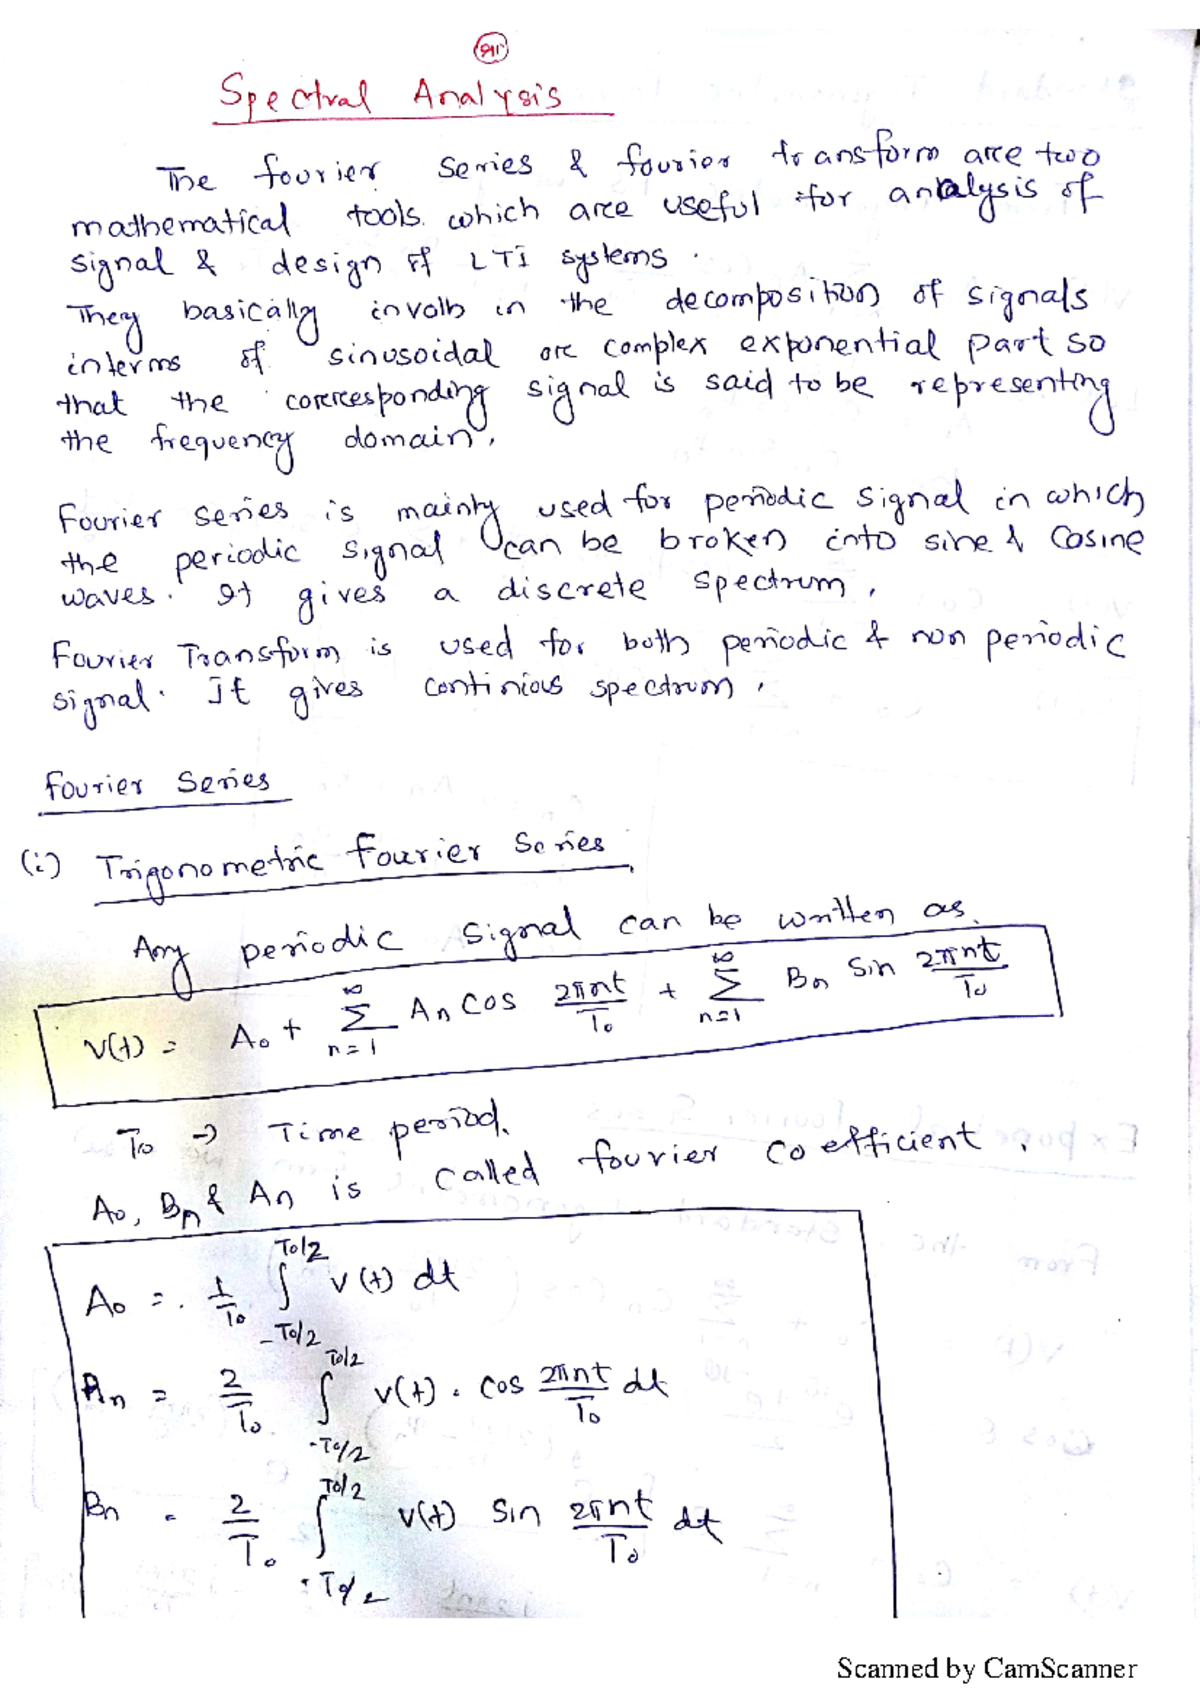 Spectral Analysis
The fourier series & fourier transform are two
mathematical tools. which are useful for analysis of
signal & design of LTI systems.
They basically involb in the decomposition of signals
interms of sinusoidal or complex exponential part so
that the corresponding signal is said to be representing
the frequency domain.
Fourier series is mainly used for periodic signal in which
the periodic signal can be broken into sine & Cosine
waves. It gives a discrete spectrum.
Fourier Transform is used for both periodic & non periodic
signal. It gives continious spectrum.
Fourier Series
(i) Trigonometric Fourier Series
Any periodic signal can be written as.
V(t) = A₀ + ∑_{n=1}^{∞} An Cos 2πnt/T₀ + ∑_{n=1}^{∞} Bn Sin 2πnt/T₀
T₀ → Time period.
A₀, Bn & An is called fourier coefficient.
A₀ = 1/T₀ ∫_{-T₀/2}^{T₀/2} v(t) dt
An = 2/T₀ ∫_{-T₀/2}^{T₀/2} v(t). cos 2πnt/T₀ dt
Bn = 2/T₀ ∫_{-T₀/2}^{T₀/2} v(t) sin 2πnt/T₀ dt
Scanned by CamScanner